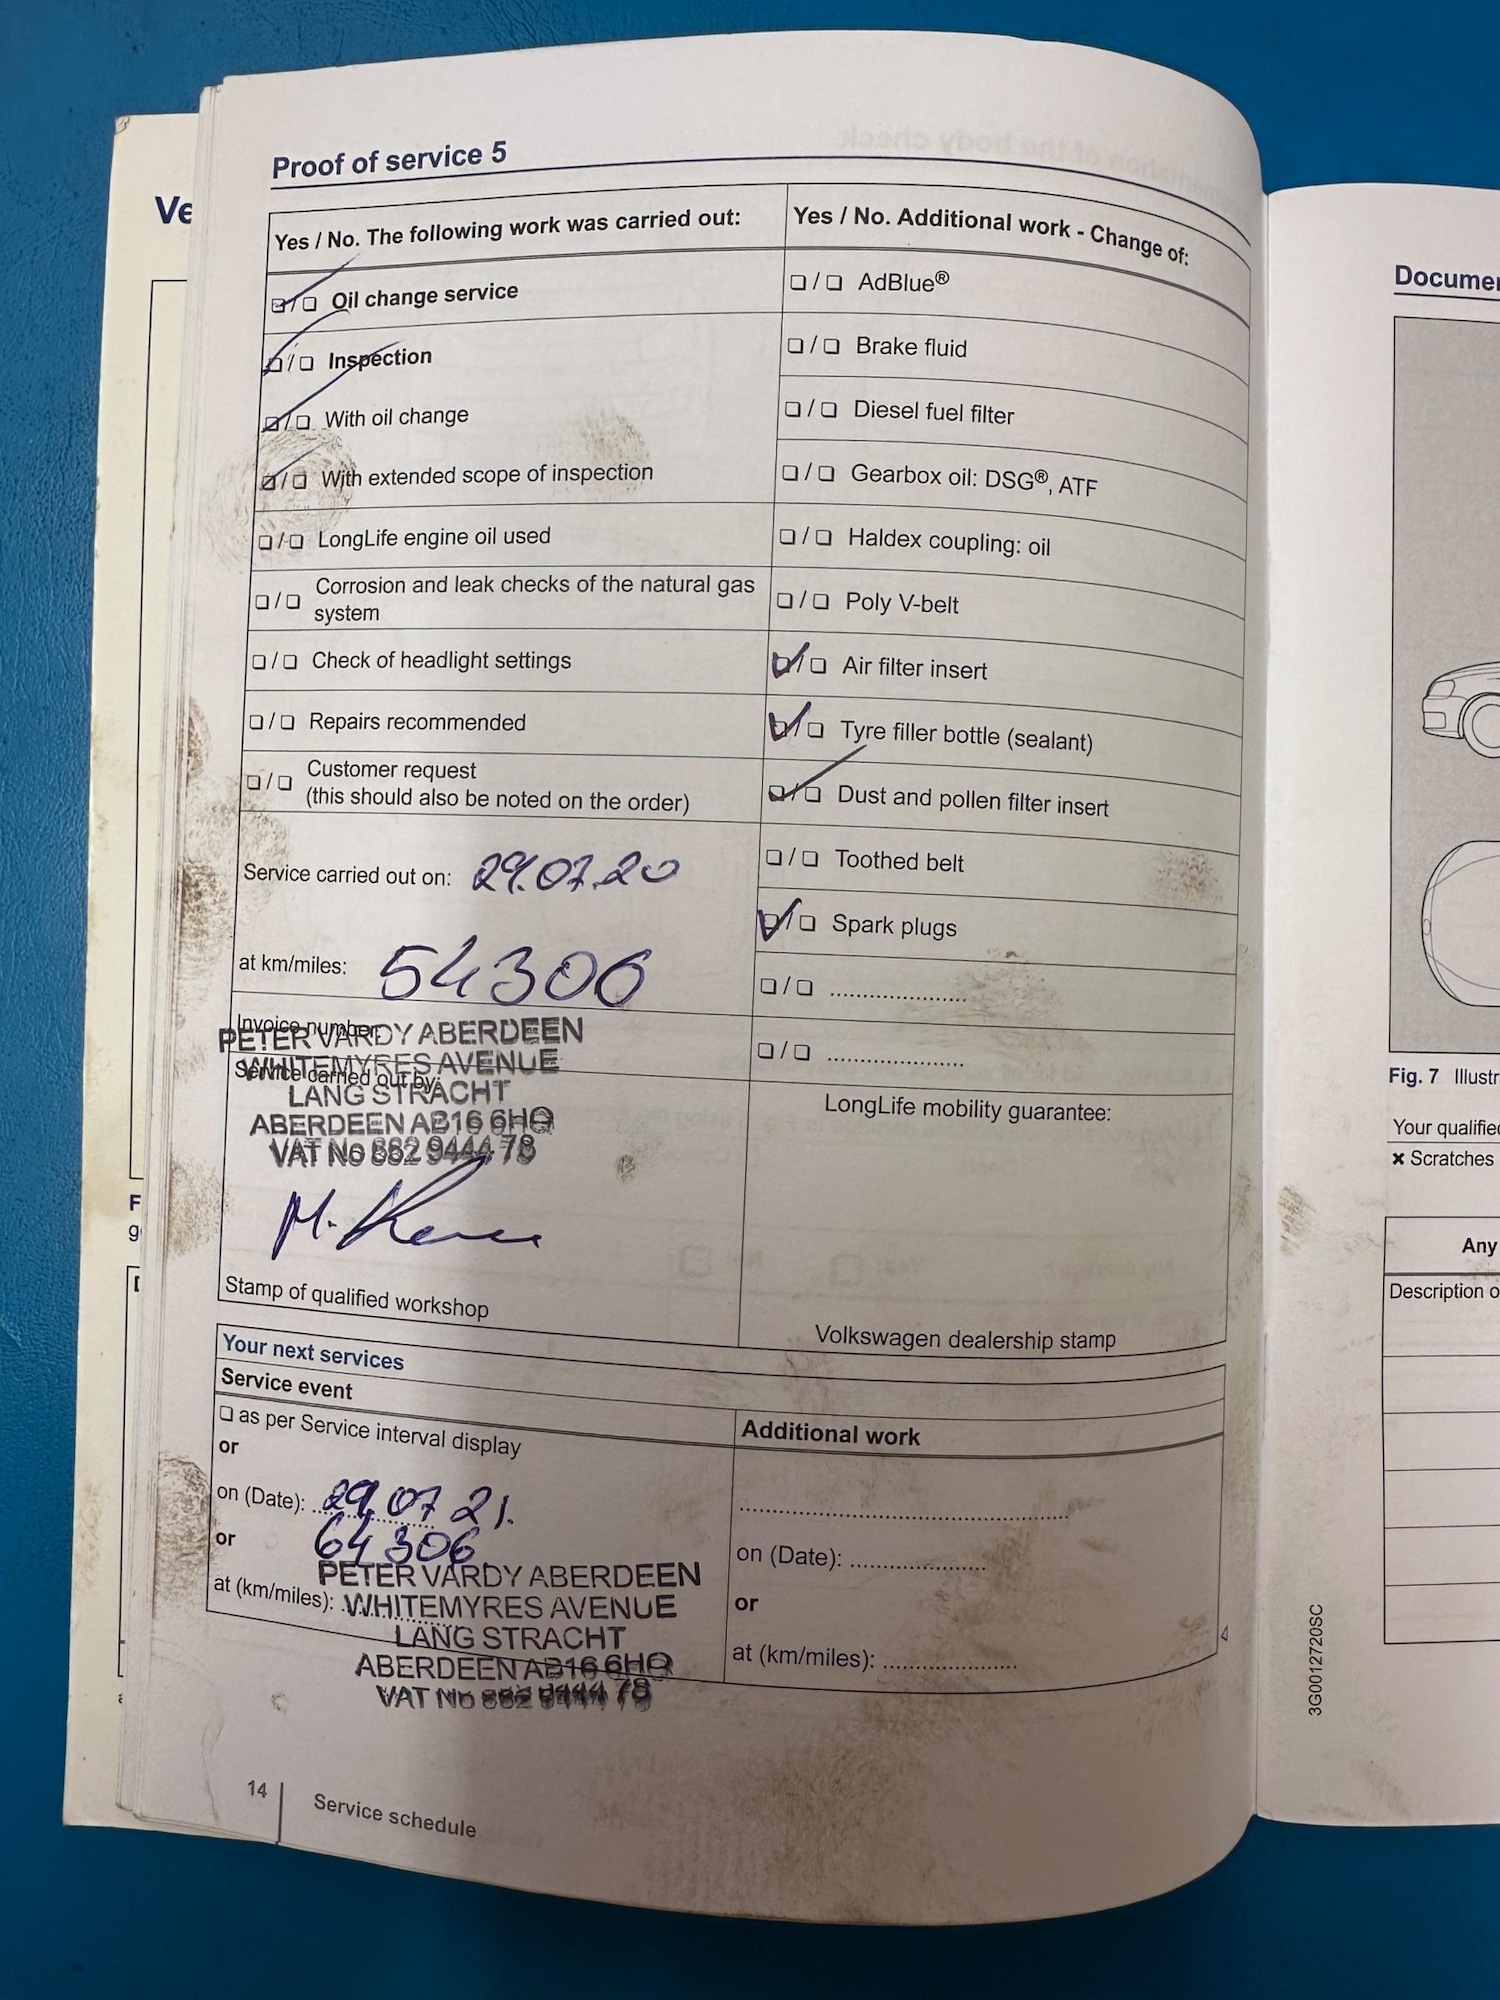 Proof of service 5
Yes / No. The following work was carried out:
☑ / ❏ Oil change service
☑ / ❏ Inspection
☑ / ❏ With oil change
☑ / ❏ With extended scope of inspection
❏ / ❏ LongLife engine oil used
❏ / ❏ Corrosion and leak checks of the natural gas
system
❏ / ❏ Check of headlight settings
❏ / ❏ Repairs recommended
❏ / ❏ Customer request
(this should also be noted on the order)
Service carried out on: 29.07.20
at km/miles: 54306
Invoice number:
Service carried out by:
PETER VARDY ABERDEEN
WHITEMYRES AVENUE
LANG STRACHT
ABERDEEN AB16 6HQ
VAT No 882 9444 78
Stamp of qualified workshop
Yes / No. Additional work - Change of:
❏ / ❏ AdBlue®
❏ / ❏ Brake fluid
❏ / ❏ Diesel fuel filter
❏ / ❏ Gearbox oil: DSG®, ATF
❏ / ❏ Haldex coupling: oil
❏ / ❏ Poly V-belt
☑ / ❏ Air filter insert
☑ / ❏ Tyre filler bottle (sealant)
☑ / ❏ Dust and pollen filter insert
❏ / ❏ Toothed belt
☑ / ❏ Spark plugs
❏ / ❏ ......................
❏ / ❏ ......................
LongLife mobility guarantee:
Volkswagen dealership stamp
Your next services
Service event
❏ as per Service interval display
or
on (Date): 29.07 21.
or
64 306
at (km/miles):
PETER VARDY ABERDEEN
WHITEMYRES AVENUE
LANG STRACHT
ABERDEEN AB16 6HQ
VAT No 882 9444 78
Additional work
on (Date): ......................
or
at (km/miles): ......................
14
Service schedule
Ve
Documen
Fig. 7 Illustr
Your qualifie
✖ Scratches
Any
Description o
3G0012720SC